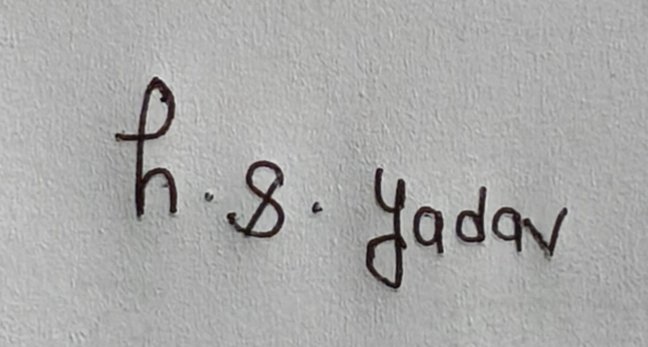 h.s. Yadav